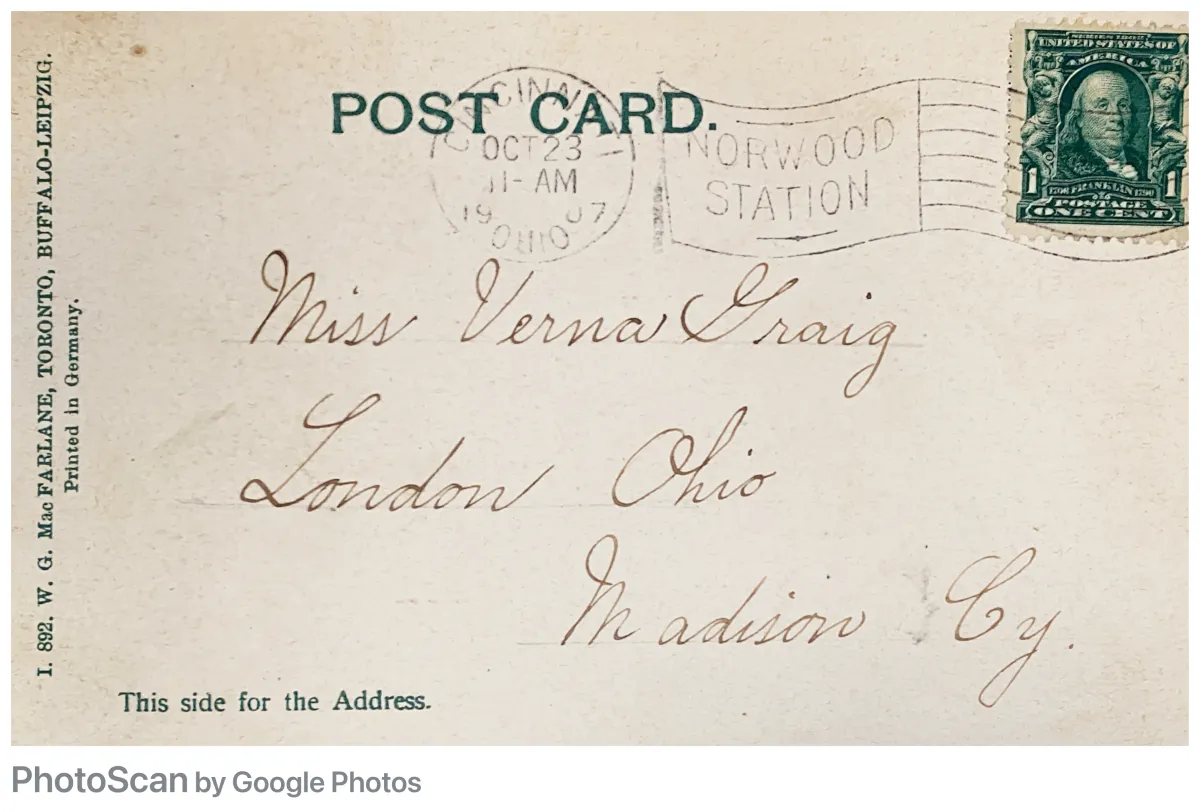 POST CARD.
CINCINNATI
OCT 23
11-AM
1907
OHIO
NORWOOD
STATION
SERIES 1902
UNITED STATES OF
AMERICA
1706 FRANKLIN 1790
1 1
POSTAGE
ONE CENT
Miss Verna Graig
London Ohio
Madison Cy.
This side for the Address.
I. 892. W. G. Mac FARLANE, TORONTO, BUFFALO-LEIPZIG.
Printed in Germany.
PhotoScan by Google Photos